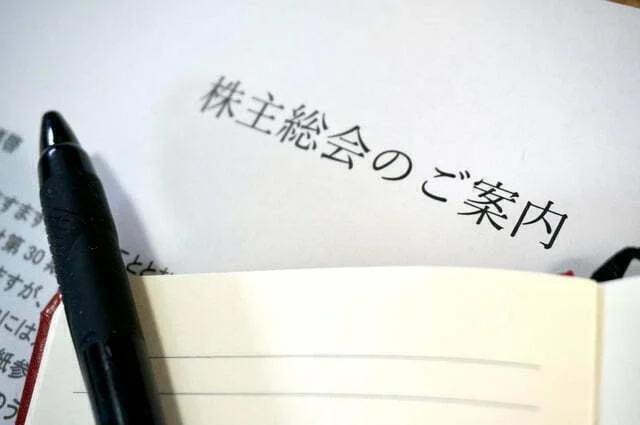 株主総会のご案内
ますます
第30
ことと
ますが、
には
紙参
のう